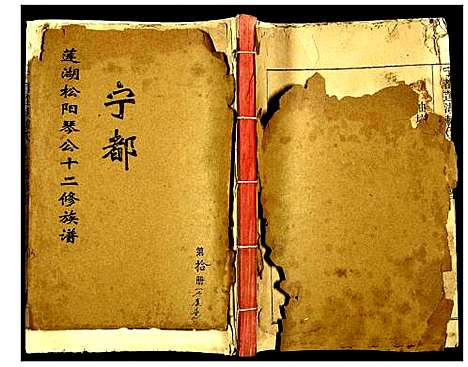 莲湖松阳琴公十二修族谱
宁都
第拾册